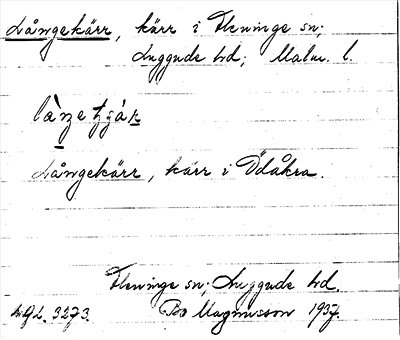 Långekärr, kärr i Fleninge sn;
Luggude hd; Malm. l.
Långekärr, kärr i Ödåkra.
Fleninge sn; Luggude hd.
Bo Magnusson 1937.